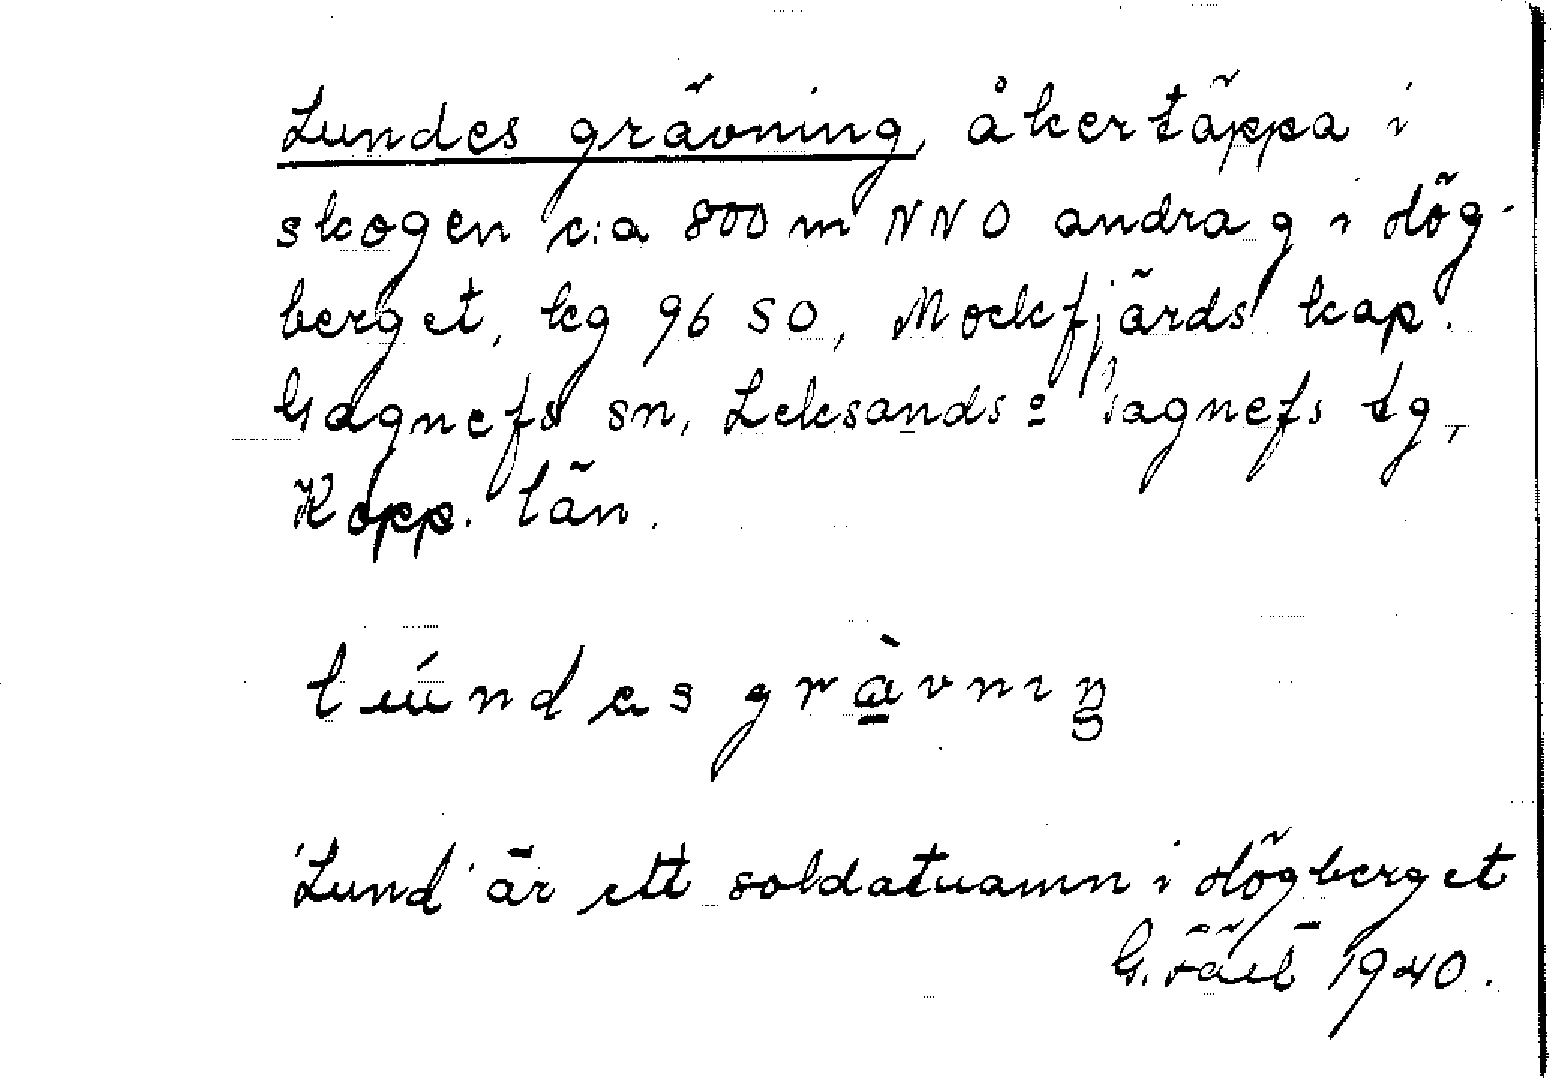 Lundes grävning, åkertäppa i
skogen c:a 800 m NNO andra g i Hög-
berget, kg 96 SO, Mockfjärds kap.
Gagnefs sn, Leksands o Gagnefs tg,
Kopp. län.
lúndes gràvnıŋ
'Lund' är ett soldatnamn i Högberget
G. 1940.